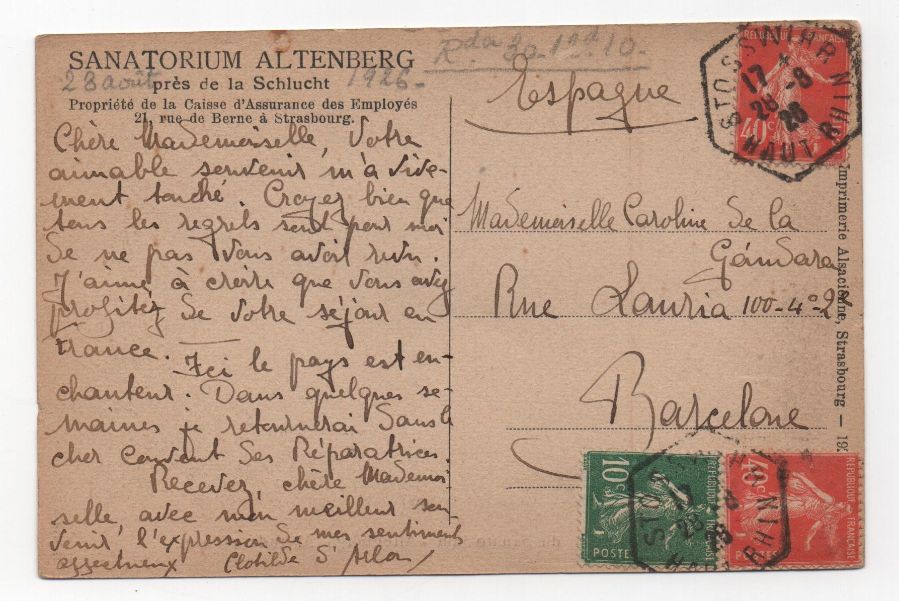 SANATORIUM ALTENBERG
près de la Schlucht
28 août 1926-
Propriété de la Caisse d'Assurance des Employés
21, rue de Berne à Strasbourg.
Rda 30-10-
Chère Mademoiselle, Votre
aimable souvenir m'a vive-
ment touché. Croyez bien que
tous les regrets sont pour moi
de ne pas vous avoir revu.
J'aime à croire que vous avez
profitez de votre séjour en
France. — Ici le pays est en-
chanteur. Dans quelques se-
maines je retournerai dans le
cher couvent des Réparatrices.
Recevez, chère Mademoi
selle, avec mon meilleur sou
venir, l'expression de mes sentiments
affectueux Clotilde
Espagne
Mademoiselle Caroline de la
Gándara
Rue Lauria 100-4º-2ª
Barcelone
Imprimerie Alsacienne, Strasbourg — 19
REPUBLIQUE FRANÇAISE
40c
STOSSWIHR
17 * -8
28
26
HAUT RHIN
10c
REPUBLIQUE FRANÇAISE
POSTES
40c
REPUBLIQUE FRANÇAISE
POSTES
HAUT RHIN